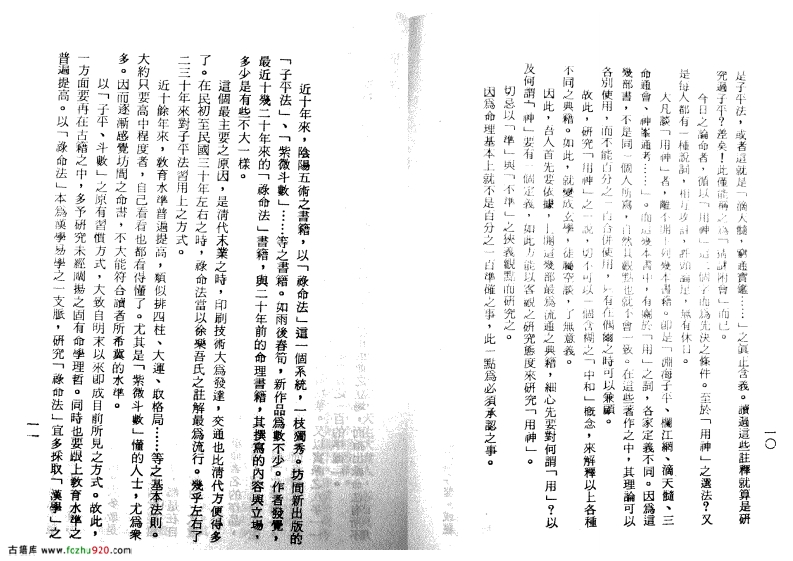 一〇
是子平法，或者這就是「滴天髓，窮通寶鑑……」之眞正含義。讀過這些註釋就算是研
究過子平？差矣！此僅能稱之為「猜謎兩會」而已。
今日之論命者，循以「用神」這二個字而為先決之條件。至於「用神」之選法？又
是每人都有一種說詞，相互攻訐，許與論是，無有休日。
大凡談「用神」者，離不開下列幾本書籍。即是「淵海子平、欄江網、滴天髓、三
命通會、神峯通考……」。而這幾本書中，有關於「用」之詞，各家定義不同。因為這
幾部書，不是同一個人所寫，自然其觀點也就不會一致。在這些著作之中，其理論可以
各別使用，而不能百分之一百合併使用，只有在偶爾之時可以兼顧。
故此，研究「用神」之一說，切不可以一個含糊之「中和」概念，來解釋以上各種
不同之典籍。如此，就變成玄學，徒騁空談，了無意義。
因此，吾人首先要依據，上開這幾部最為流通之典籍，細心先要對何謂「用」？以
及何謂「神」要有一個定義，如此方能以客觀之研究態度來研究「用神」。
切忌以「準」與「不準」之狹義觀點而研究之。
因為命理基本上就不是百分之一百準確之事，此一點為必須承認之事。
近十年來，陰陽五術之書籍，以「祿命法」這一個系統，一枝獨秀。坊間新出版的
「子平法」、「紫微斗數」……等之書籍。如雨後春筍，新作品為數不少。作者發覺，
最近十幾二十年來的「祿命法」書籍，與二十年前的命理書籍，其撰寫的內容與立場，
多少是有些不大一樣。
這個最主要之原因，是清代末葉之時，印刷技術大為發達，交通也比清代方便得多
了。在民初至民國三十年左右之時，祿命法當以徐樂吾氏之註解最為流行。幾乎左右了
二三十年來對子平法習用上之方式。
近十餘年來，敎育水準普遍提高，類似排四柱、大運、取格局……等之基本法則。
大約只要高中程度者，自己看看也都看得懂了。尤其是「紫微斗數」懂的人士，尤為衆
多。因而逐漸感覺坊間之命書，不大能符合讀者所希冀的水準。
以「子平、斗數」之原有習慣方式，大致自明末以來卽成目前所見之方式。故此，
一方面要再在古籍之中，多予研究未經闡揚之固有命學理哲。同時也要跟上敎育水準之
普遍提高。以「祿命法」本為漢學易學之一支脈，研究「祿命法」宜多採取「漢學」之
一一
古籍库 www.fczhu920.com